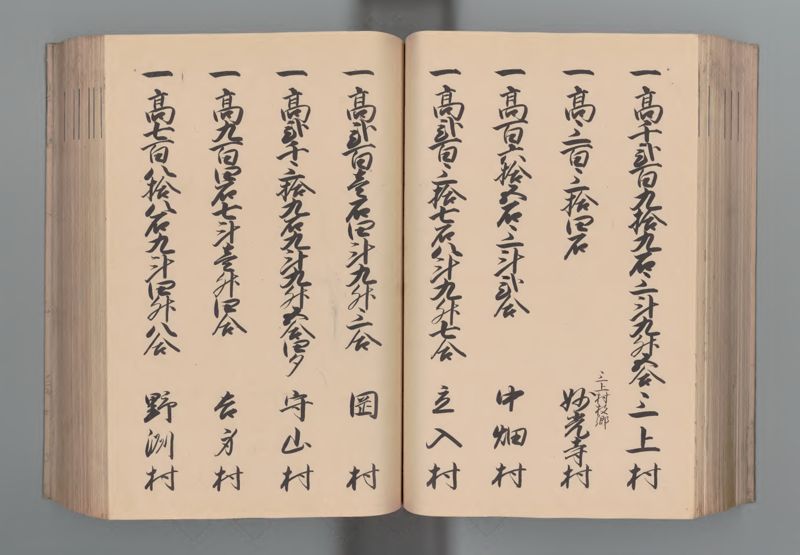 一高千弐百九拾九石三斗九升五合 三上村
一高三百三拾四石 三上村枝郷 妙光寺村
一高百六拾五石三斗弐合 中畑村
一高弐百三拾七石八斗九升七合 立入村
一高弐百壱石四斗九升三合 岡村
一高弐千三拾九石九斗九升五合四夕 守山村
一高九百四石七斗壱升四合 吉身村
一高七百八拾八石九斗四升八合 野洲村